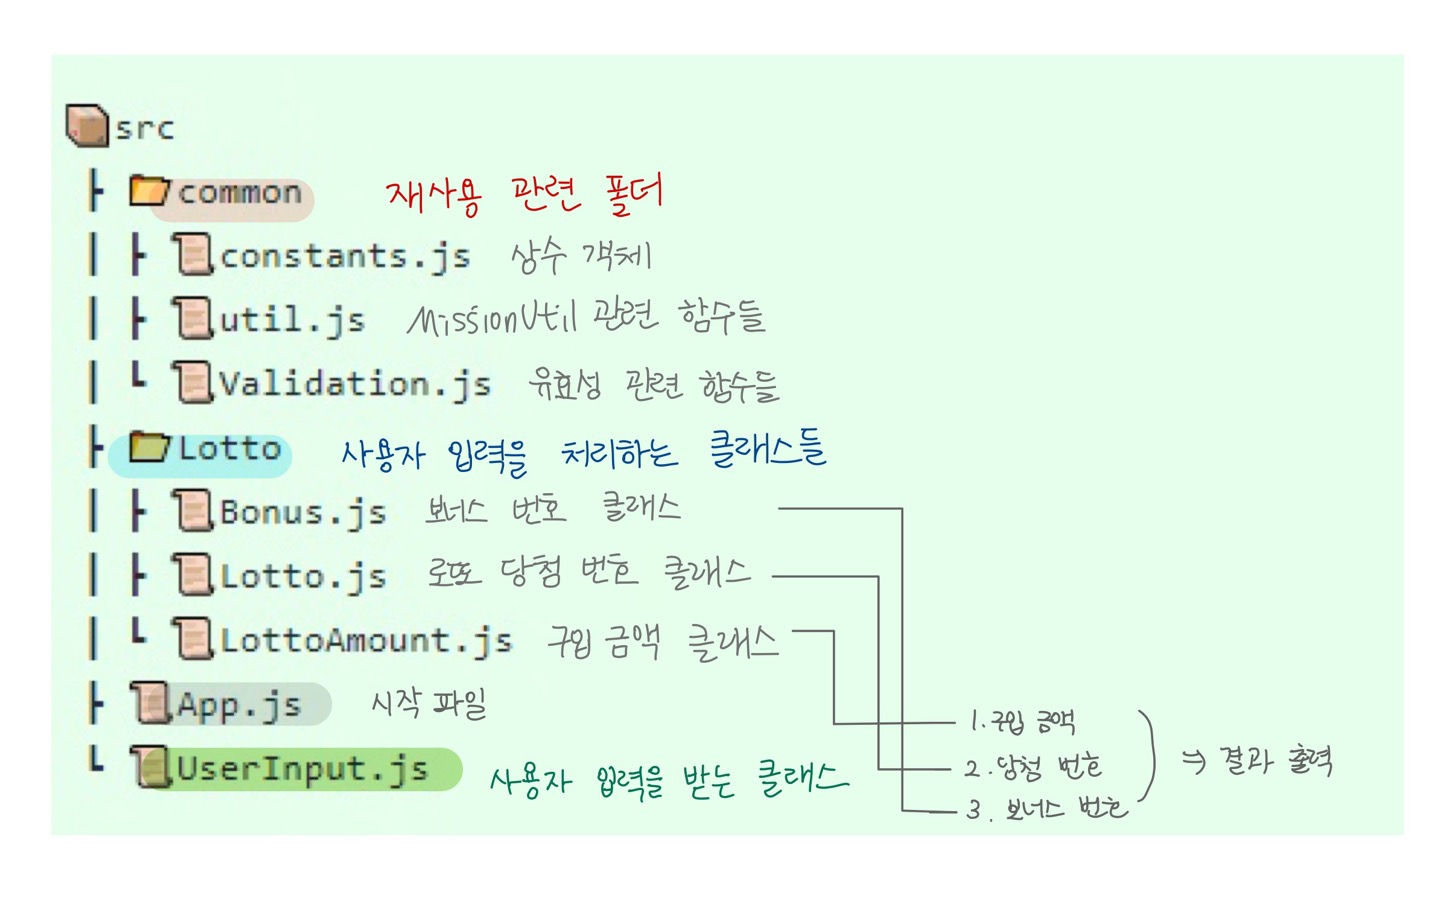 src
├ common 재사용 관련 폴더
│ ├ constants.js 상수 객체
│ ├ util.js MissionUtil 관련 함수들
│ └ Validation.js 유효성 관련 함수들
├ Lotto 사용자 입력을 처리하는 클래스들
│ ├ Bonus.js 보너스 번호 클래스
│ ├ Lotto.js 로또 당첨 번호 클래스
│ └ LottoAmount.js 구입 금액 클래스
├ App.js 시작 파일
└ UserInput.js 사용자 입력을 받는 클래스
1. 구입 금액
2. 당첨 번호
3. 보너스 번호
⇒ 결과 출력